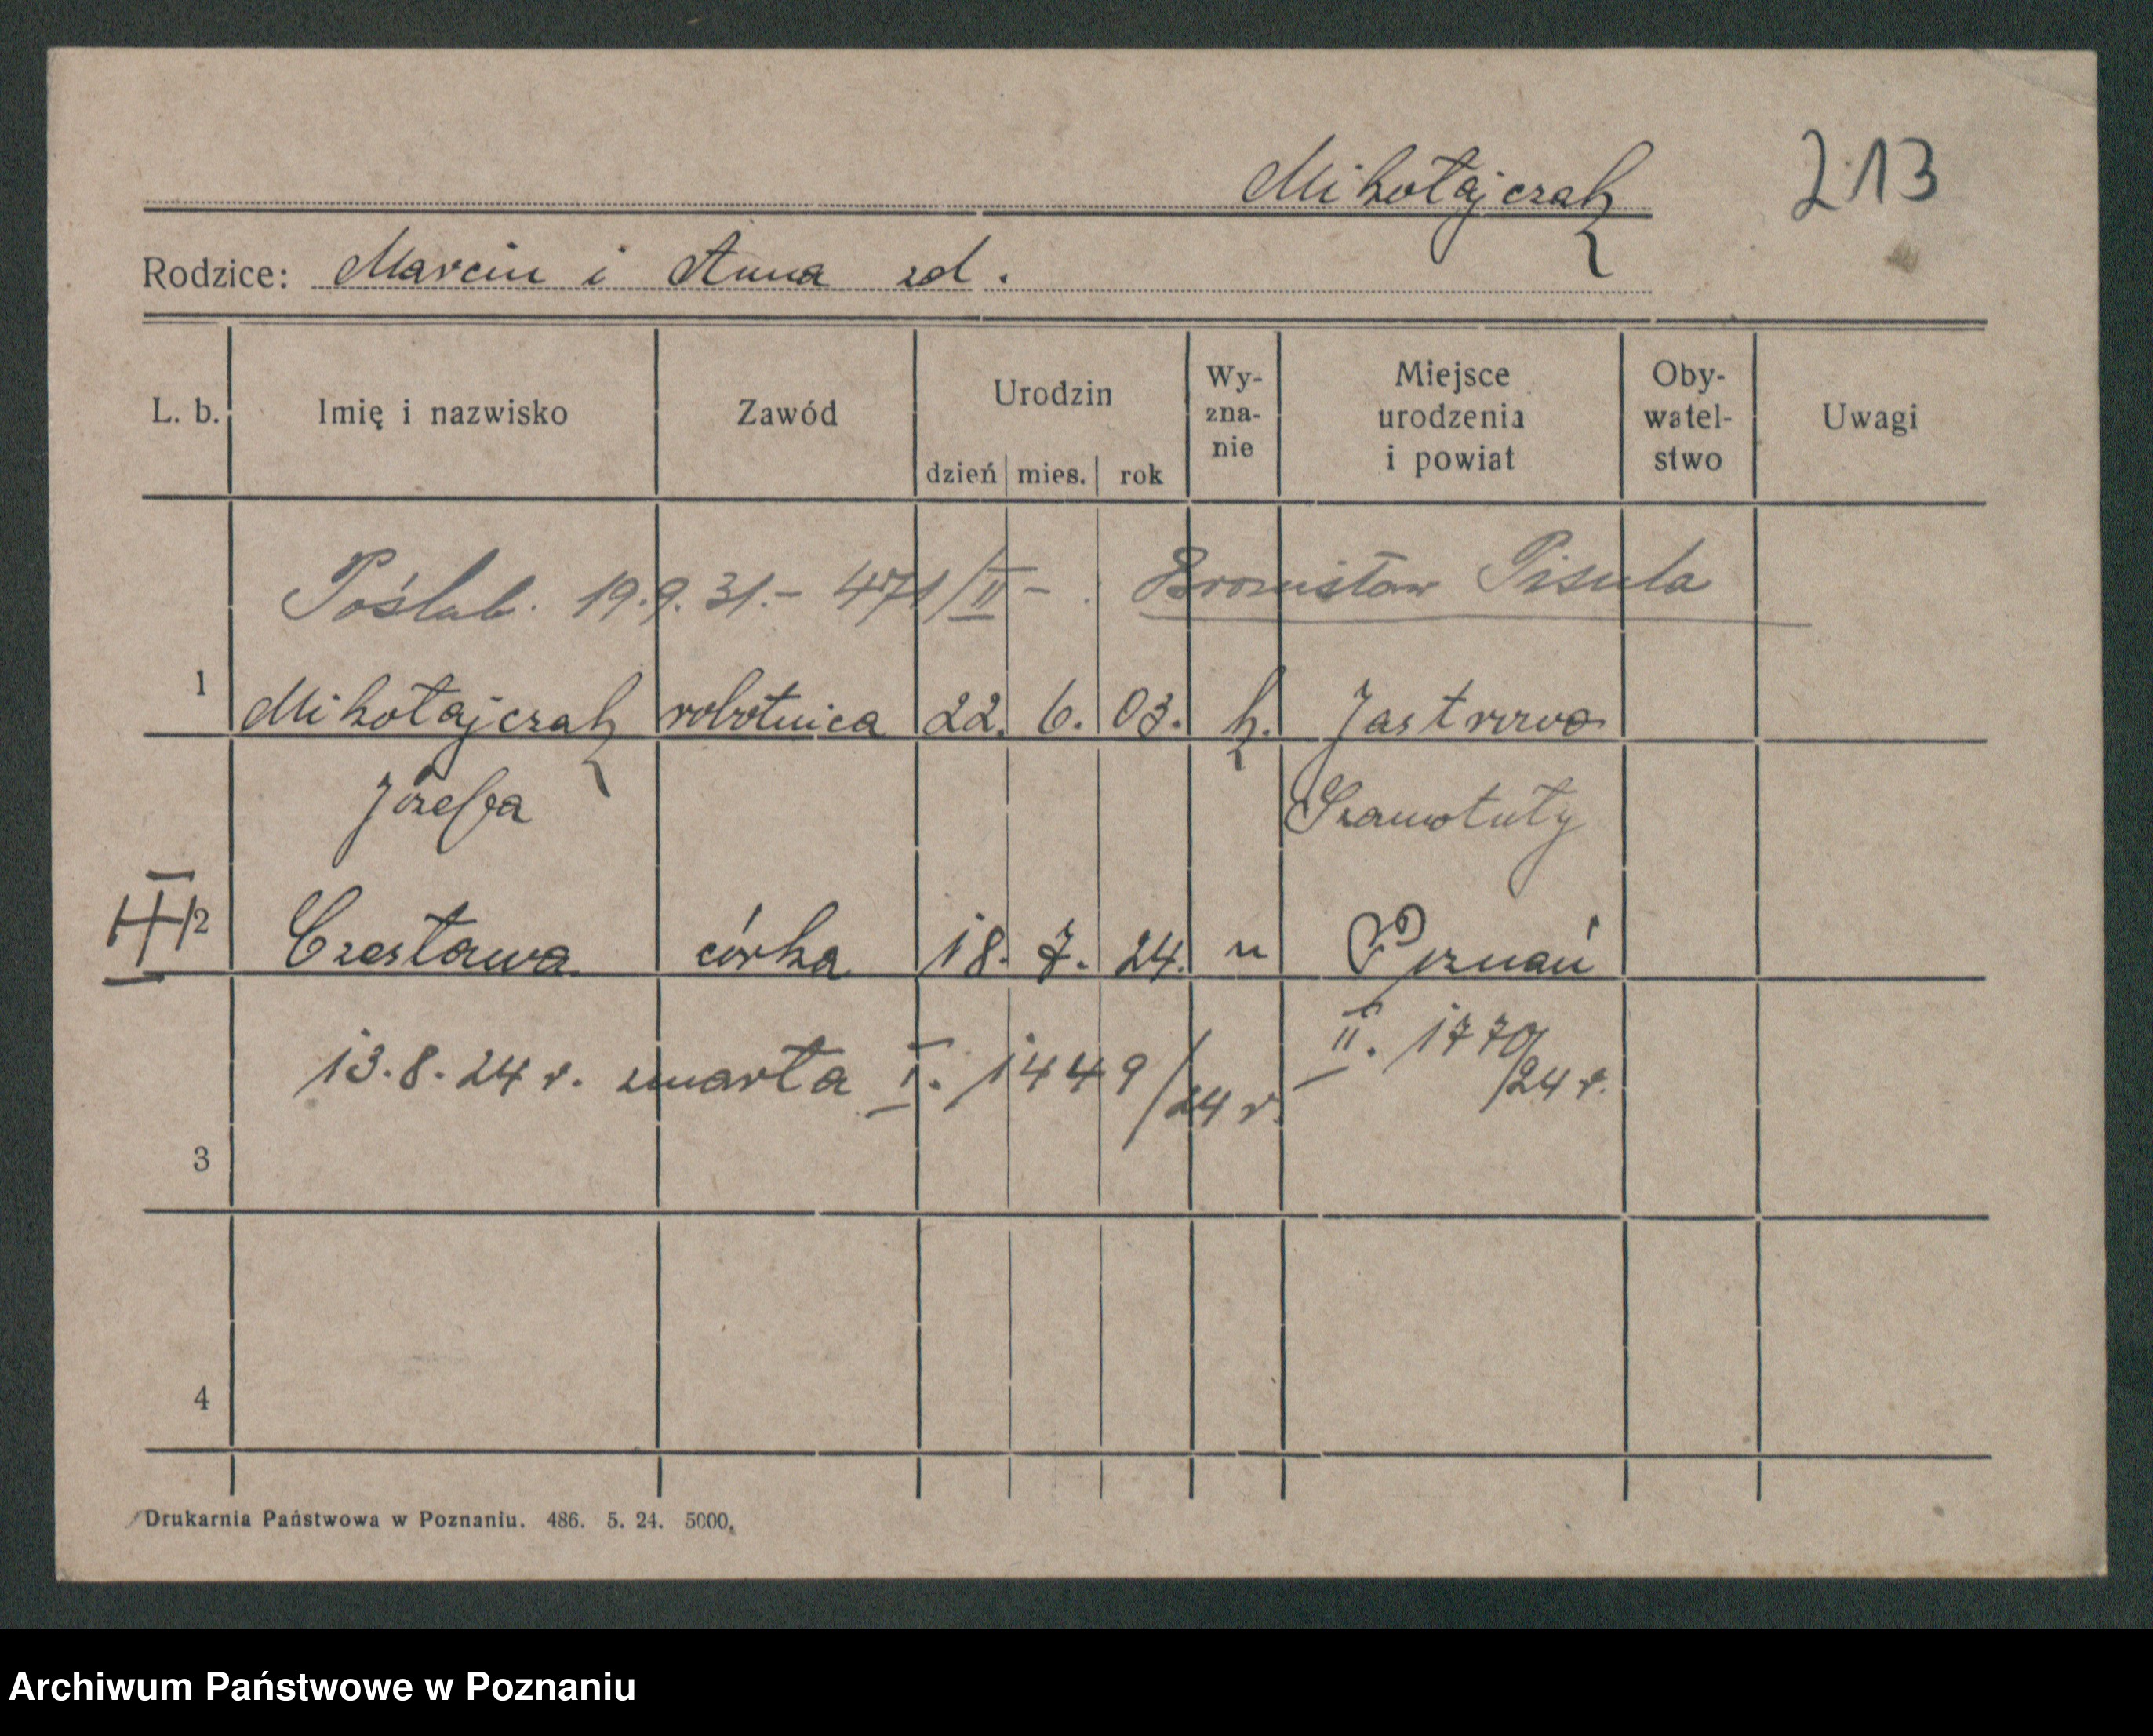 Mikołajczak 213
Rodzice: Marcin i Anna zd.
L. b. Imię i nazwisko Zawód Urodzin dzień mies. rok Wy-zna-nie Miejsce urodzenia i powiat Oby-watel-stwo Uwagi
Poślub. 19.9.31.- 471/II - Bronisław Pisula
1 Mikołajczak robotnica 22. 6. 03. k. Jastrowo
Józefa Szamotuły
2 Czesława córka 18. 7. 24. " Poznań
13.8.24 r. zmarła I. 1449/24 r. II. 1770/24 r.
3
4
Drukarnia Państwowa w Poznaniu. 486. 5. 24. 5000.
Archiwum Państwowe w Poznaniu